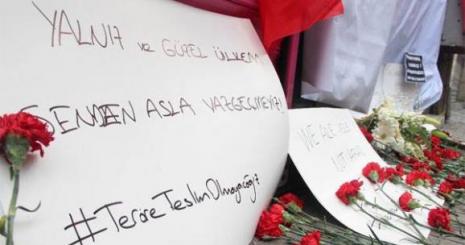 YALNIZ ve GÜZEL ÜLKEM
SENDEN ASLA VAZGEÇMEYİZ!
#TeröreTeslimOlmayacağız
WE ARE